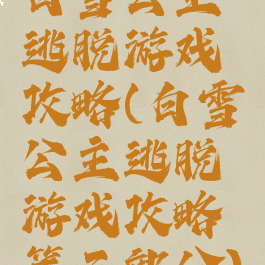 白雪公主
逃脱游戏
攻略(白雪
公主逃脱
游戏攻略
第二部分)